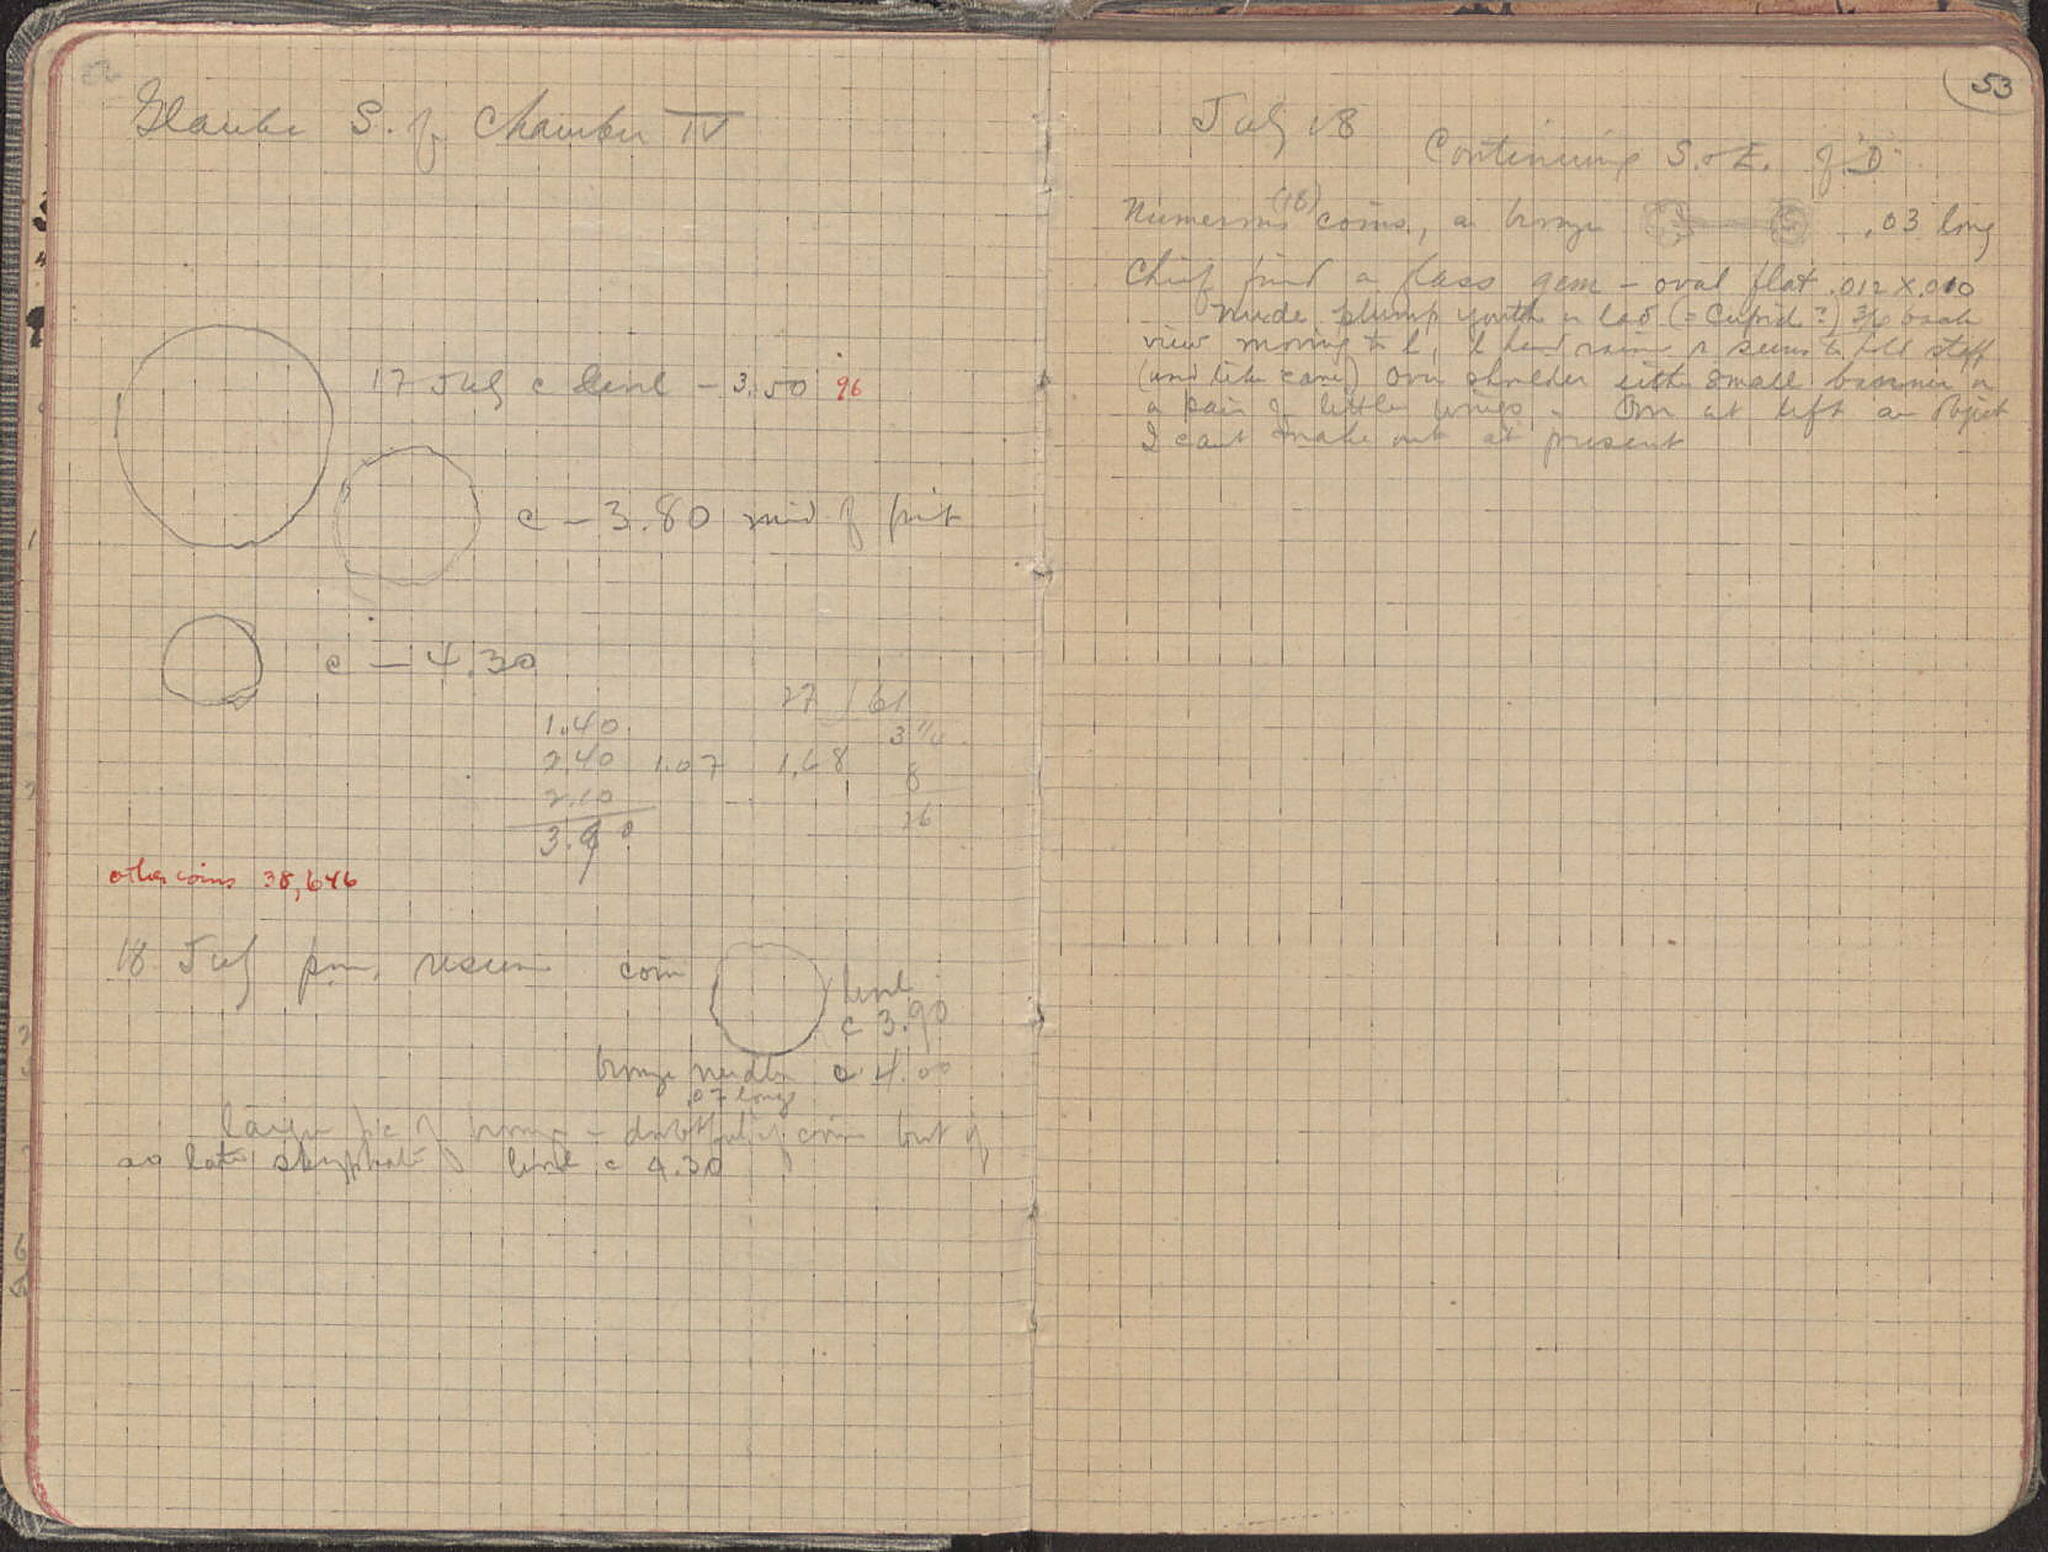 Glauke S. of Chamber IV
17 July c level - 3.50 96
c - 3.80 mid of
c - 4.30
27 61
1.40
3 1/4
2.40 1.07 1.68 8
2.10
26
3.90
other coins 38, 646
18 July p.m. resume coin
level
c 3.90
bronze needle c 4.00
.07 long
large pc of bronze - doubtful if coin but if
so late skyphate level c 4.30
53
July 18
Continuing S. of E. of "D"
Numerous (18) coins, a bronze .03 long
Chief find a glass gem - oval flat .012 x .010
Nude plump youth or lad (= Cupid?) 3/4 back
view moving to l, l hand raised r seems to hold staff
(and like cane) over shoulder either small banner or
a pair of little wings - On at left an object
I cant make out at present